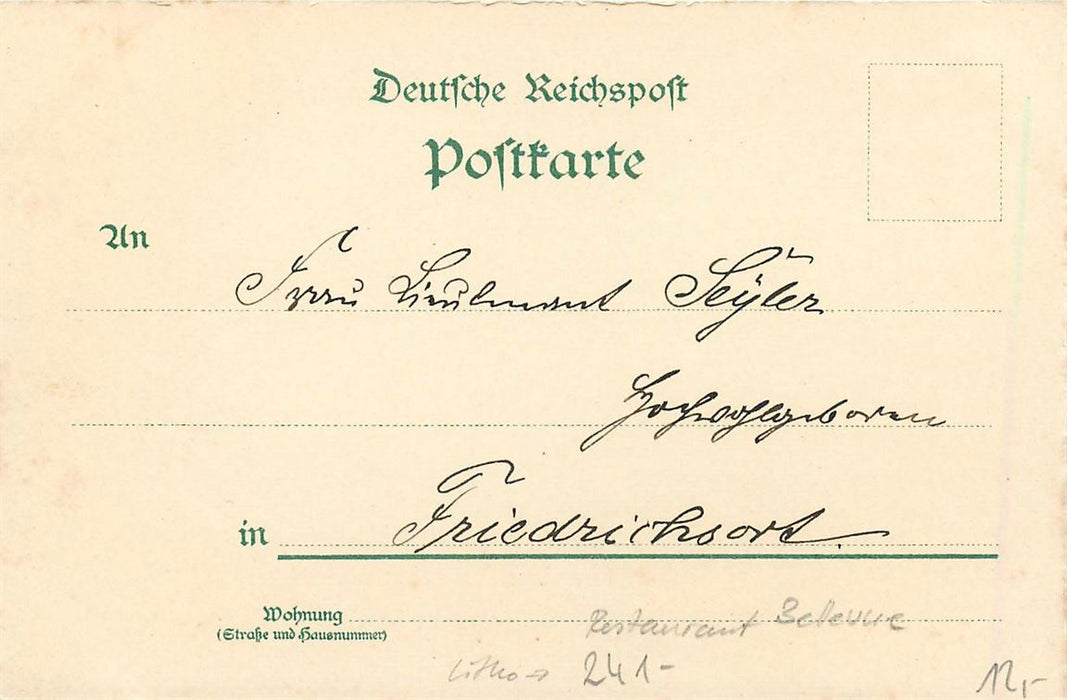 Deutsche Reichspost
Postkarte
An
Frau Lieutenant Seÿler
Hochwohlgeboren
in Friedrichsort.
Wohnung
(Straße und Hausnummer)
Restaurant Bellevue
Litho 241-
12,-